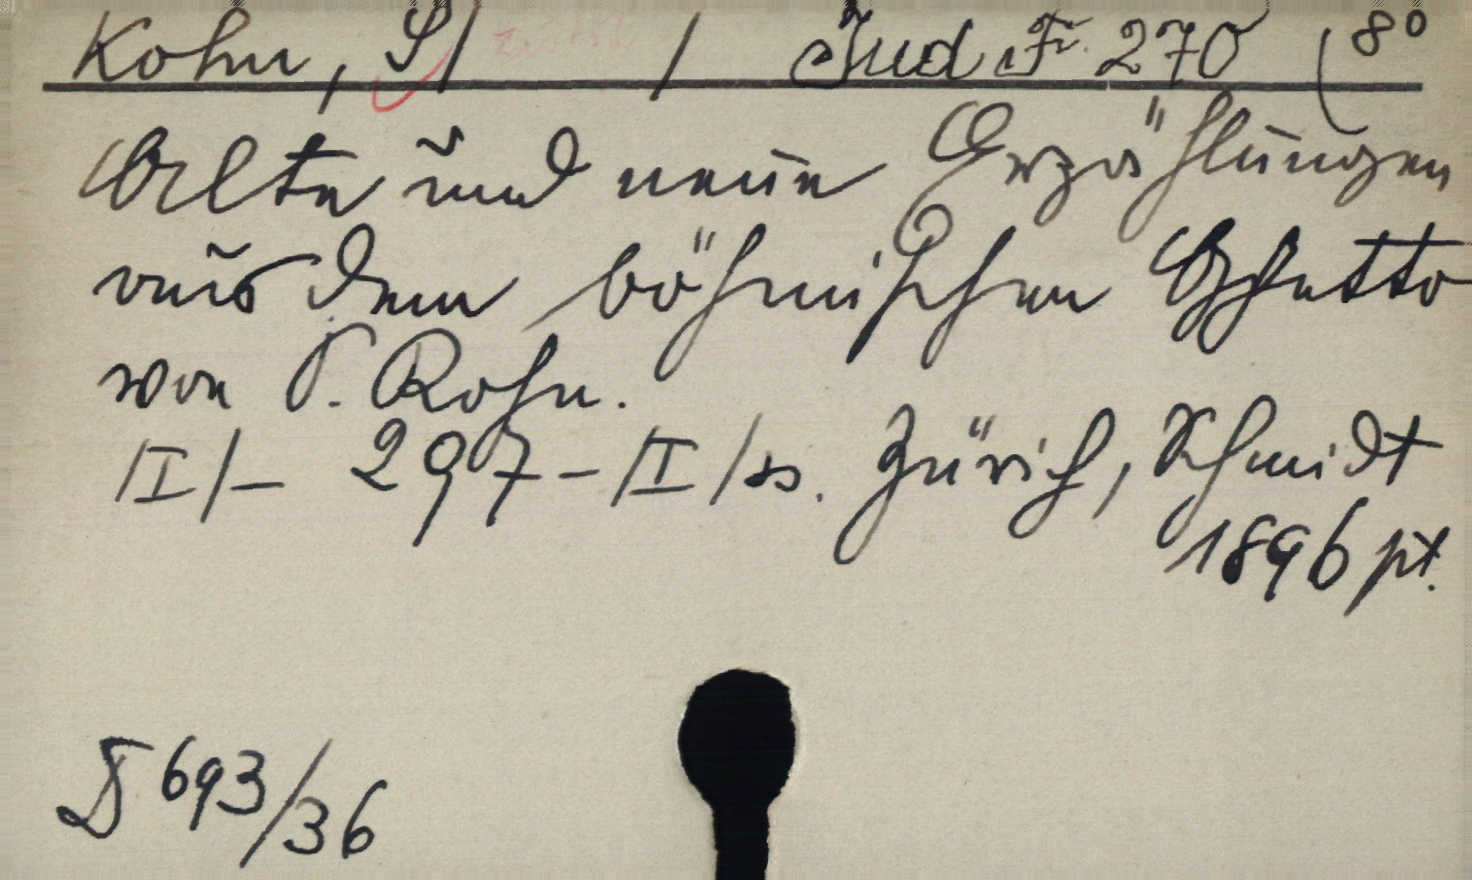 Kohn, S/ / Jud. Fr. 270 (8°
Alte und neue Erzählungen
aus dem böhmischen Ghetto
von S. Kohn.
/I/ – 297 – /I/ ss. Zürich, Schmidt
1896 pt.
D 693/36